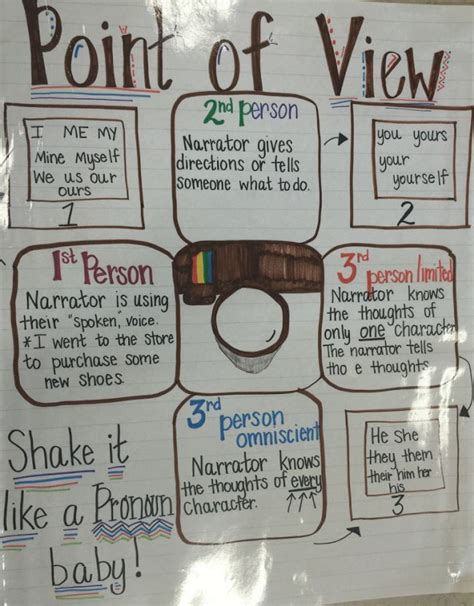 Point of View
I ME MY
Mine Myself
We us our
ours
1
2nd person
Narrator gives
directions or tells
someone what to do.
you yours
your
yourself
2
1st Person
Narrator is using
their "spoken" voice.
*I went to the store
to purchase some
new shoes.
3rd person limited
Narrator knows
the thoughts of
only one character
The narrator tells
tho e thoughts
3rd person
omniscient
Narrator knows
the thoughts of every
character.
He she
they them
their him her
his
3
Shake it
like a Pronoun
baby!